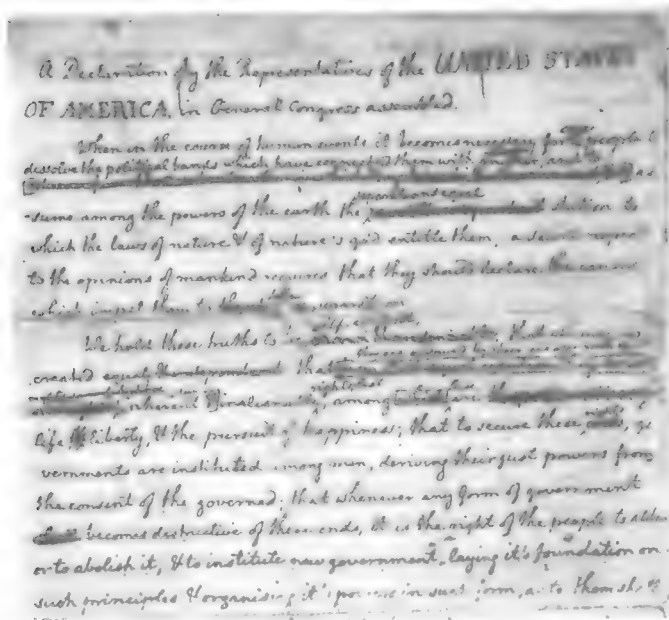 A Declaration by the Representatives of the UNITED STATES
OF AMERICA, in General Congress assembled.
When in the course of human events it becomes necessary for people
dissolve the political bands which have connected them with another, and to as
-sume among the powers of the earth the separate and equal station to
which the laws of nature & of nature's god entitle them, a decent respect
to the opinions of mankind requires that they should declare the causes
which impel them to the
We hold these truths to be self-evident; that
created equal that
rights; that
inherent & inalienable among
life, & liberty, & the pursuit of happiness; that to secure these rights, go
vernments are instituted among men, deriving their just powers from
the consent of the governed; that whenever any form of government
becomes destructive of these ends, it is the right of the people to alter
or to abolish it, & to institute new government, laying it's foundation on
such principles & organising it's powers in such form, as to them sh